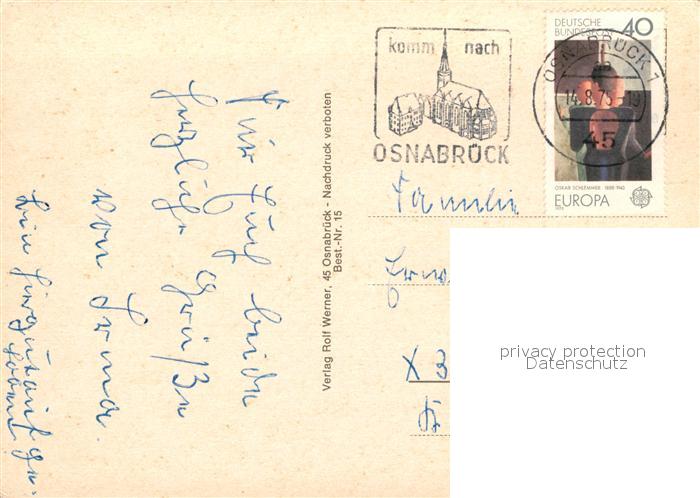 Für Euch beide
herzliche
Grüße
von Irma.
DEUTSCHE
BUNDESPOST 40
komm nach
OSNABRÜCK
OSNABRÜCK 1
14.8.75-19
45
OSKAR SCHLEMMER 1888-1943
EUROPA
Familie
X 3
Verlag Rolf Werner, 45 Osnabrück - Nachdruck verboten
Best.-Nr. 15
privacy protection
Datenschutz